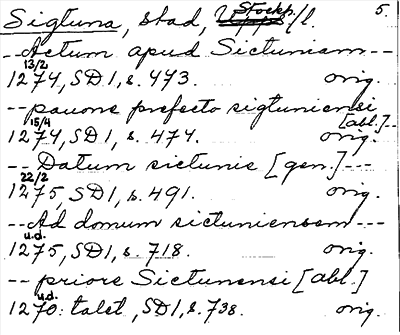 Sigtuna, stad, Upps Stockh/l. 5.
-- Actum apud Sictuniam --
13/2
1274, SD1, s. 473. orig.
-- pauone prefecto sigtuniensi
[abl.]--
15/4
1274, SD1, s. 474. orig.
-- Datum sictunie [gen.] ---
22/2
1275, SD1, s. 491. orig.
-- Ad domum sictuniensem ---
u.d.
1275, SD1, s. 718. orig.
-- priore Sictunensi [abl.]
u.d.
1270: talet, SD1, s. 738. orig.